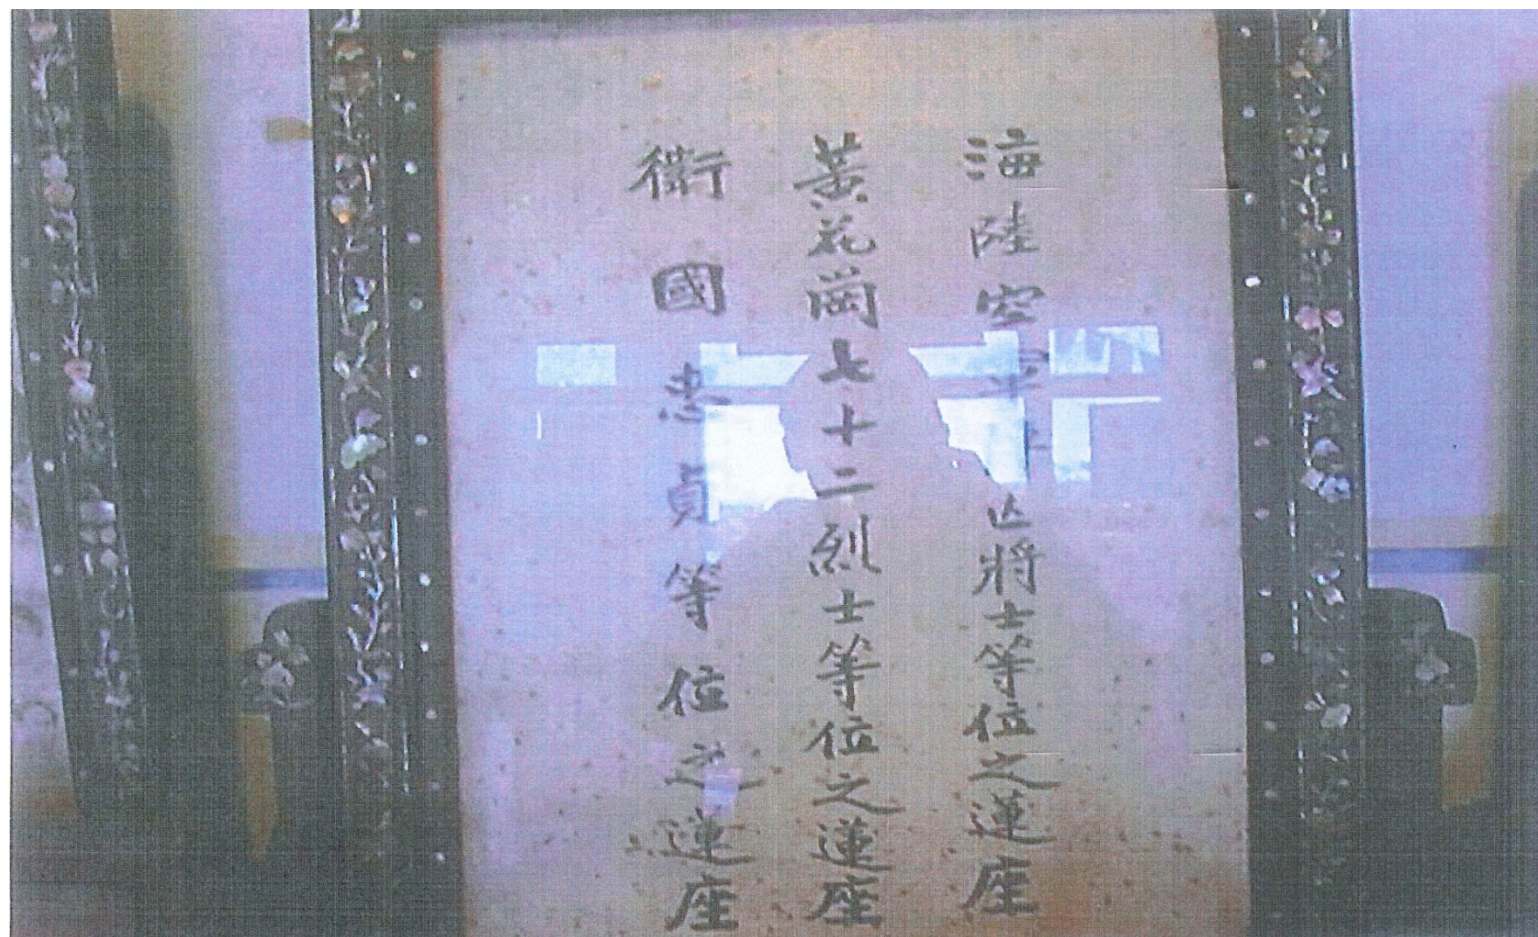 海陸空軍陣亡將士等位之蓮座
黃花崗七十二烈士等位之蓮座
衛國忠貞等位之蓮座